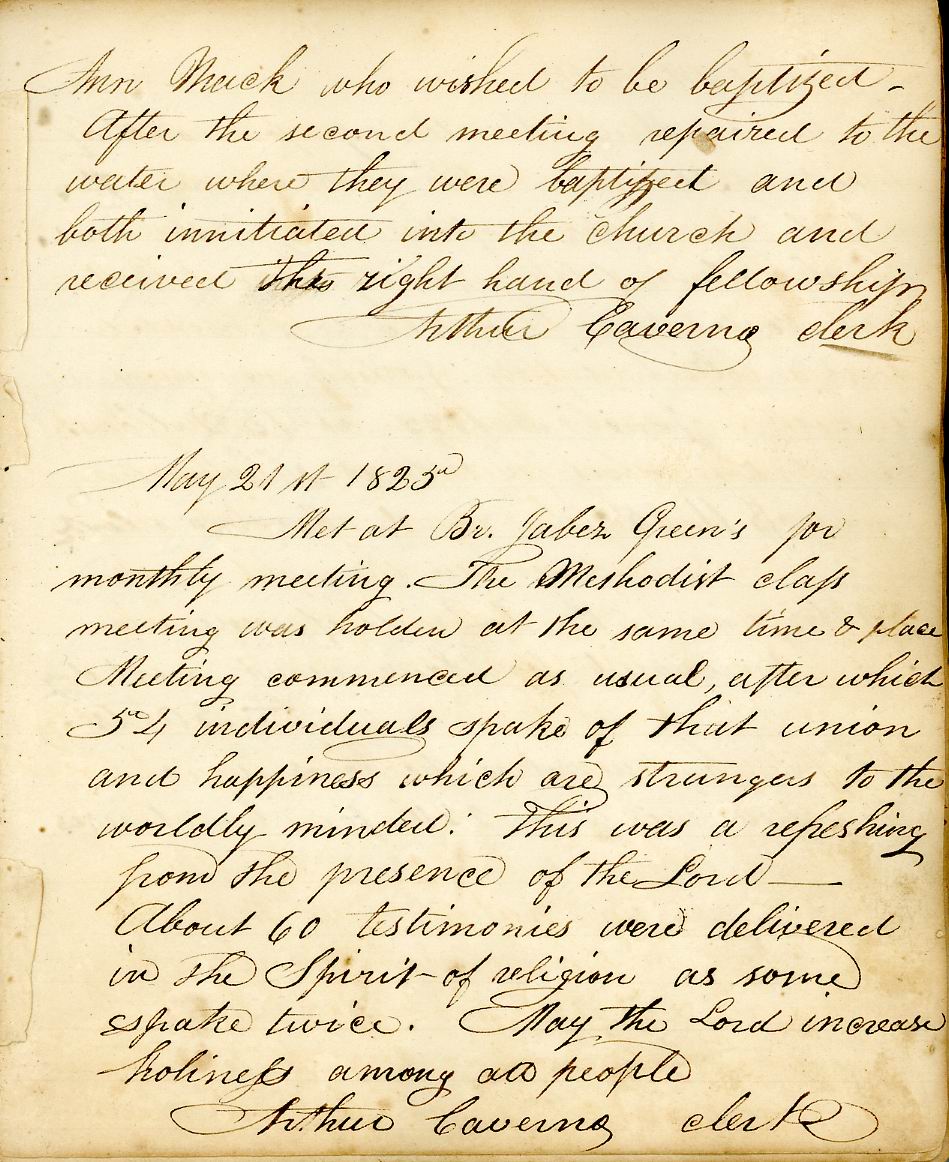 Ann Mack who wished to be baptized -
After the second meeting repaired to the
water where they were baptized and
both innitiated into the church and
received the right hand of fellowship
Arthur Caverno clerk
May 21st 1825
Met at Br. Jabez Green's for
monthly meeting. The Methodist class
meeting was holden at the same time & place
Meeting commenced as usual, after which
54 individuals spake of that union
and happiness which are strangers to the
worldly minded. This was a refeshing
from the presence of the Lord —
About 60 testimonies were delivered
in the Spirit of religion as some
spake twice. May the Lord increase
holiness among all people
Arthur Caverno clerk